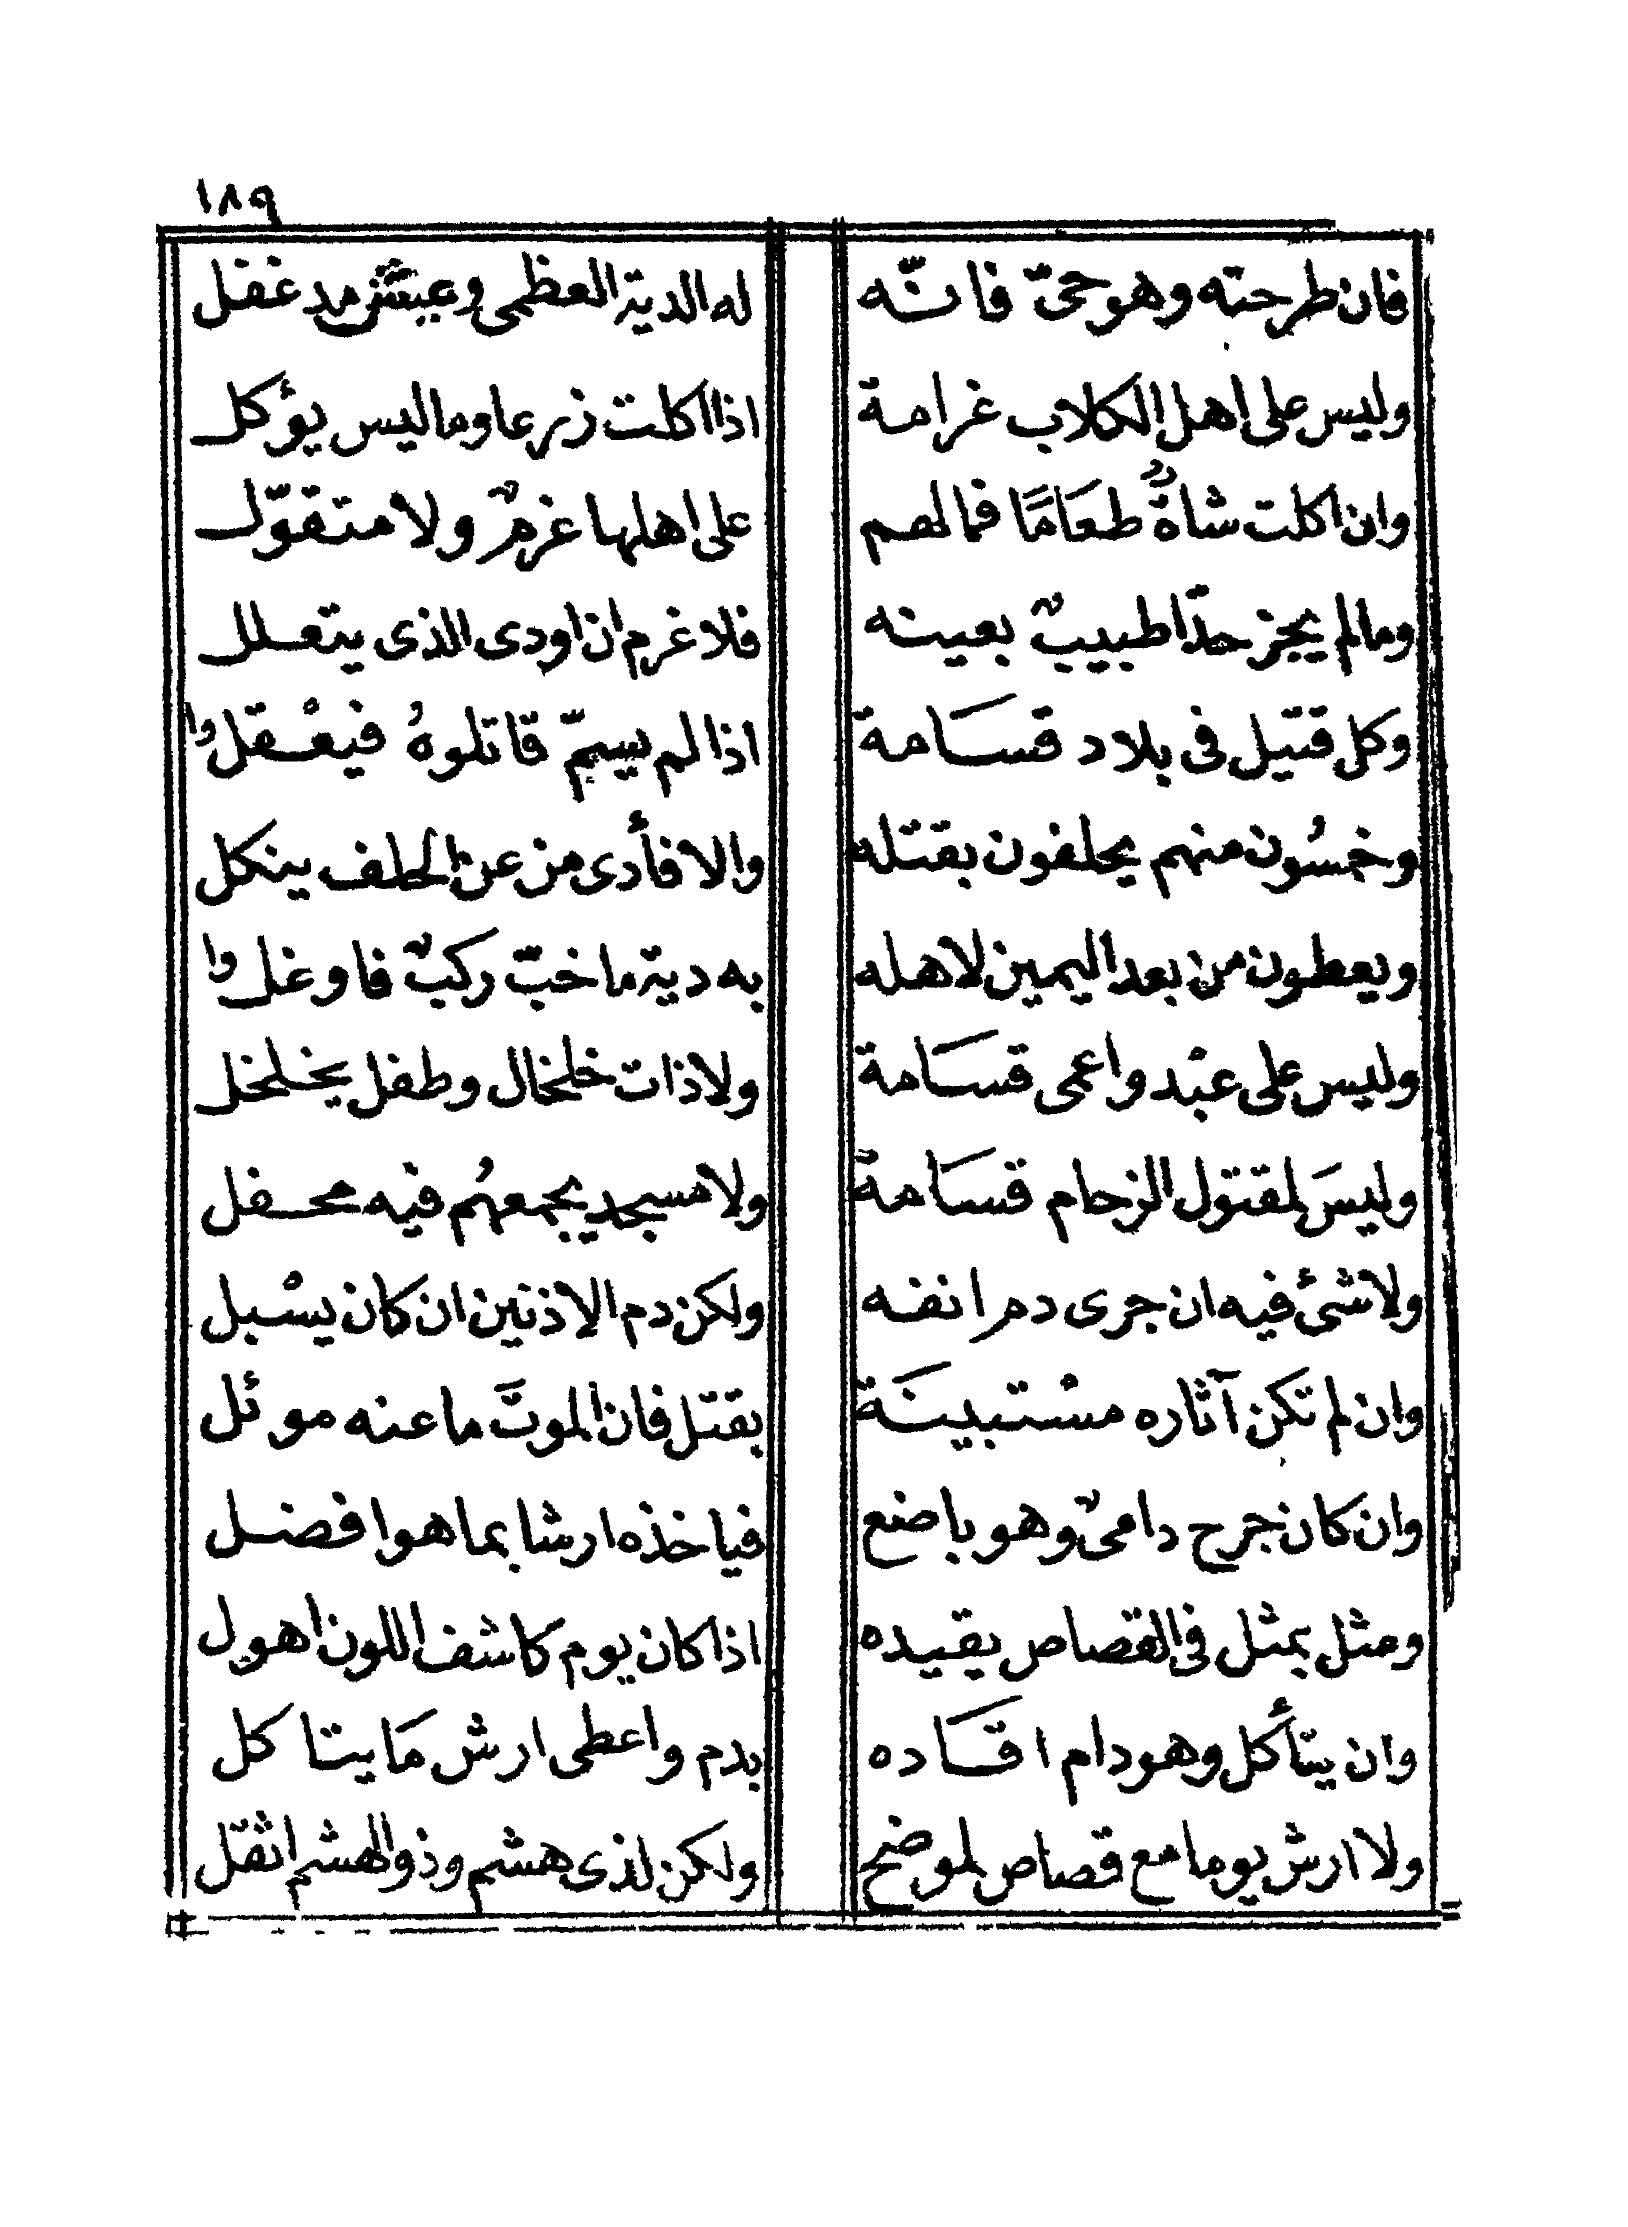 ١٨٩
فان طرحته وهو حىّ فانّه له الدية العظمى وعبسٌ مد غفل
وليس على اهل الكلاب غرامة اذا اكلت زرعا وما ليس يؤكل
وان اكلت شاةٌ طعَامًا فما لهم على اهلها غرمٌ ولا متقوّل
وما لم يجز حدّا طبيبٌ بعينه فلا غرم ان اودى الذى يتعلل
وكل قتيل فى بلاد قسَامة اذا لم يسمّ قاتلوهُ فيعْقلوا
وخمسُون منهم يحلفون بقتله والا فأدى من عن الحلف ينكل
ويعطون من بعد اليمين لاهله به دية ما خبّ ركبٌ فاوغلوا
وليس على عبْد واعمى قسَامة ولا ذات خلخال وطفل يخلخل
وليسَ لمقتول الزحام قسَامة ولا مسجد يجمعهُم فيه محفل
ولا شئ فيه ان جرى دم انفه ولكن دم الاذنين ان كان يسْبل
وان لم تكن آثاره مسْتبينَة بقتل فان الموتَ ما عنه موئل
وان كان جرح دامىٌ وهو باضع فياخذه ارشا بما هو افضل
ومثل يمثل فى القصاص يقيده اذا كان يوم كاشف اللون اهول
وان يتأكل وهو دام اقَاده بدم واعطى ارش مَا يتاكل
ولا ارش يوما مع قصاص لموضح ولكن لذى هشم وذو الهشم اثقل